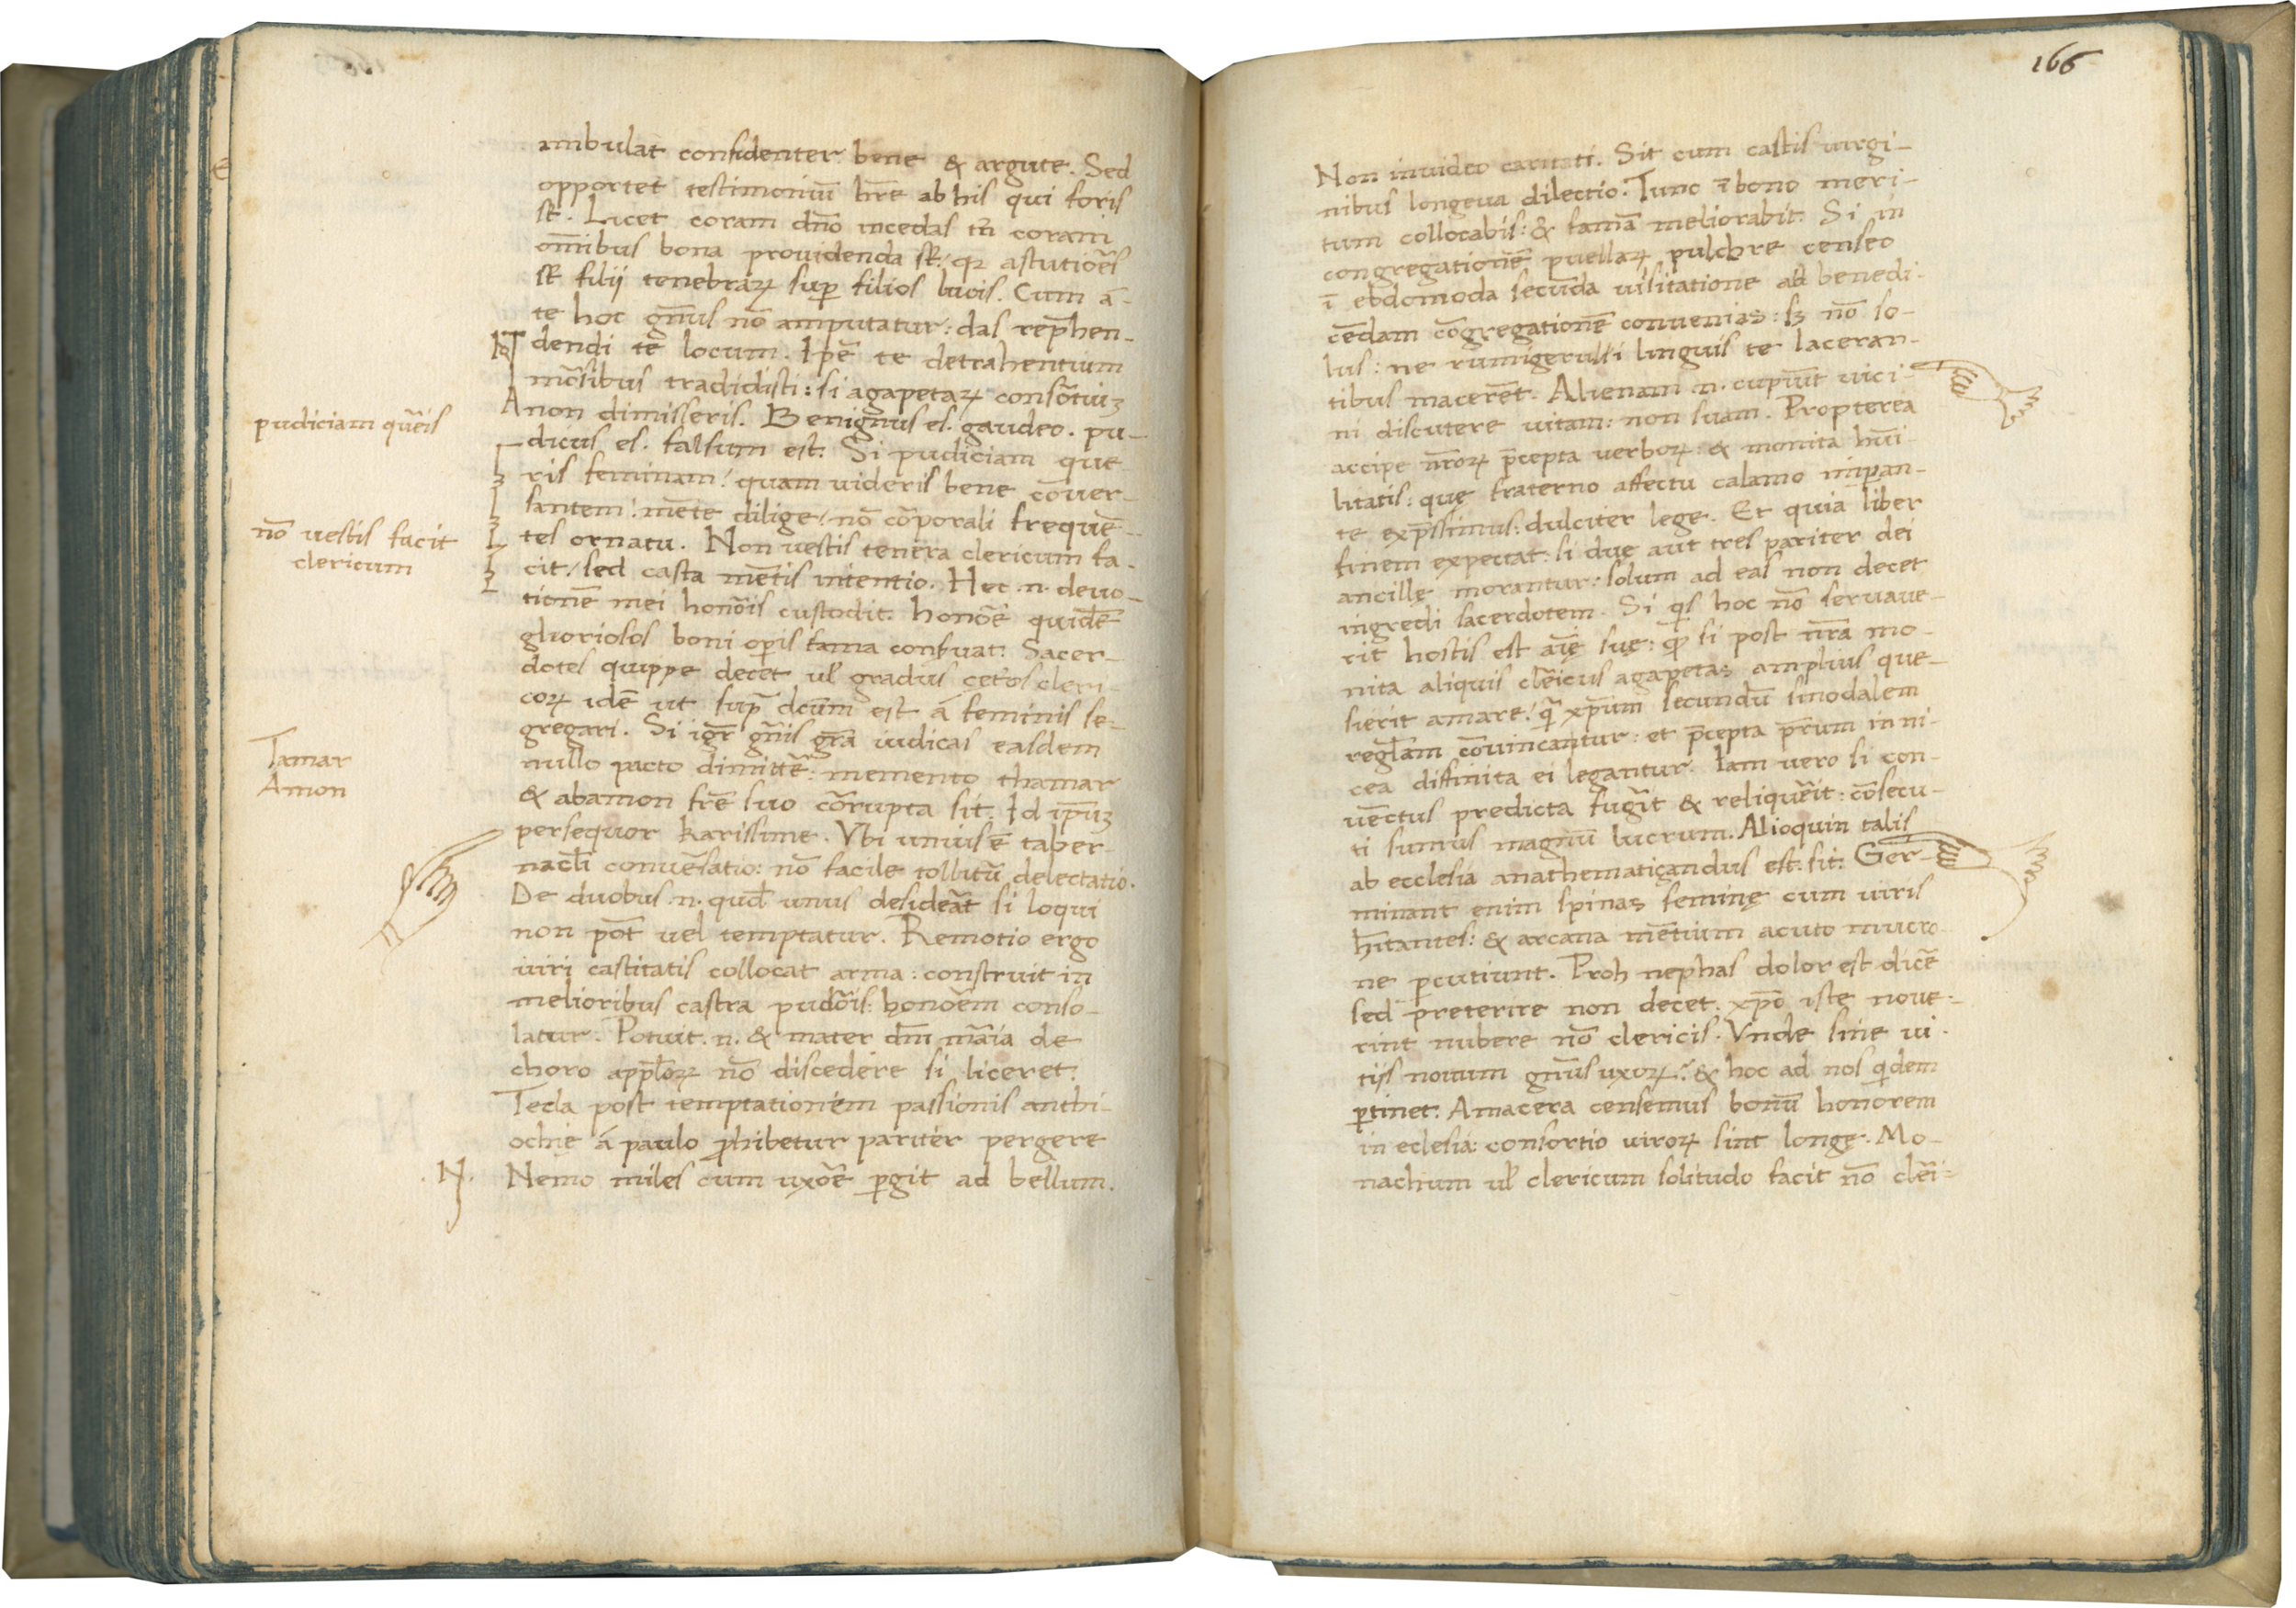 ambulat confidenter bene & argute. Sed
opportet testimoniū hr̄e ab his qui foris
st̄. Licet coram dn̄o incedas tn̄ coram
om̄ibus bona providenda st̄: qꝛ astutiōes
st̄ filij tenebrarꝝ sup̄ filios lucis. Cum ā-
te hoc gn̄us nō amputatur: das repͬhen-
dendi te locum. Ipē te detrahentium
mōsibus tradidisti: si agapetarꝝ consōtiuꝫ
non dimisseris. Benignus es. gaudeo. pu-
dicus es. falsum est. Si pudiciam que
pudiciam quēis
ris feminam: quam videris bene cōver-
santem: mēte dilige: nō cōporali frequē-
tes ornatu. Non vestis tenera clericum fa-
nō vestis facit
clericum
cit: sed casta mētis intentio. Hec .n. devo-
tionē mei honōis custodit. honōē quidē
gluoriosos boni op̄is fama conf̄uat. Sacer-
dotes quippe decet ul̄ gradus cet̄os cleri-
corꝝ idē ut sup̄ dc̄um est á feminis se-
gregari. Si igr̄ gn̄is gr̄a iudicas easdem
nullo pacto dimittē: memento thamar
Tamar
Amon
& abamon fr̄e suo cōrupta sit. Id ip̄uꝫ
persequor karissime. Vbi unius ē taber-
nacl̄i convēsatio: nō facile tollitū delectatio.
De duobus .n. qud̄ unus desideāt si loqui
non pōt vel temptatur. Remotio ergo
viri castitatis collocat arma: construit in
melioribus castra pudōis: honōēm conso-
latur. Potuit .n. & mater dn̄i māia de
choro app̄lorꝝ nō discedere si liceret.
Tecla post temptationem passionis anthi-
ochie á paulo ꝓhibetur pariter pergere
.N. Nemo miles cum uxōē ꝑgit ad bellum.
166
Non invideo caritati. Sit cum castis virgi-
nibus longeva dilectio. Tunc ī bono meri-
tum collocabis: & famā meliorabit. Si in
congregationē puellarꝝ pulchre censeo
ī ebdomoda secūda visitatione ad benedi-
cēdam cōgregationē convenias: sꝫ nō so-
lus: ne rumigerulsi linguis te laceran-
tibus macerēt. Alienam .n. cupiūt vici-
ni discutere vitam: non suam. Propterea
accipe nr̄orꝝ p̄cepta verborꝝ: & monita hūi-
litatis: quę fraterno affectu calamo inpan-
te exp̄ssimus: dulciter lege. Et quia liber
finem expectat: si due aut tres pariter dei
ancillę morantur: solum ad eas non decet
ingredi sacerdotem. Si qͥs hoc nō servave-
rit hostis est aīę suę: qͣ si post nr̄a mo-
nita aliquis clēicus agapetas amplius que-
sierit amare: qͣ xp̄um secundū sinodalem
regl̄am cōvincantur: et p̄cepta pr̄um in ni-
cea diffinita ei legantur. Iam vero si con-
vēctus predicta fugīt & reliquēit: cōsecu-
ti sumus magnū lucrum. Alioquin talis
ab ecclesia anathematiçandus est: sit: Ger-
minant enim spinas feminę cum viris
hītantes: & arcana mētium acuto mucro-
ne ꝑcutiunt. Proh nephas dolor est dicē
sed preterire non decet: xp̄o iste nove-
rint nubere nō clericis. Vnde sine vi-
tijs novum gn̄us uxorꝝ: & hoc ad nos qͥdem
ꝑtinet: Amacera censemus bonū honorem
in eclesia: consortio virorꝝ sint longę. Mo-
nachum ul̄ clericum solitudo facit nō clēi-